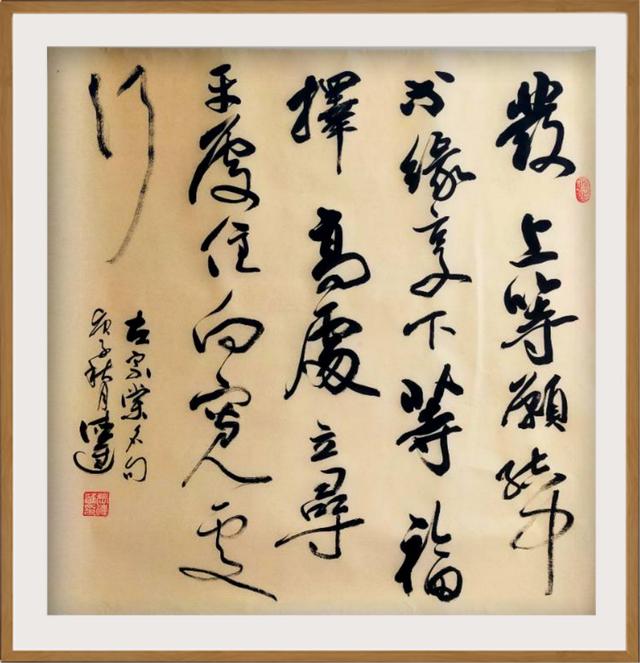 發上等願結中
等緣享下等福
擇高處立尋
平處住向寬處
行
左宗棠名句
庚子秋月